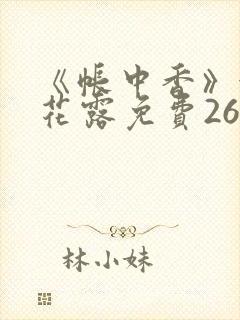 《帐中香》
花露免費26
林小妹